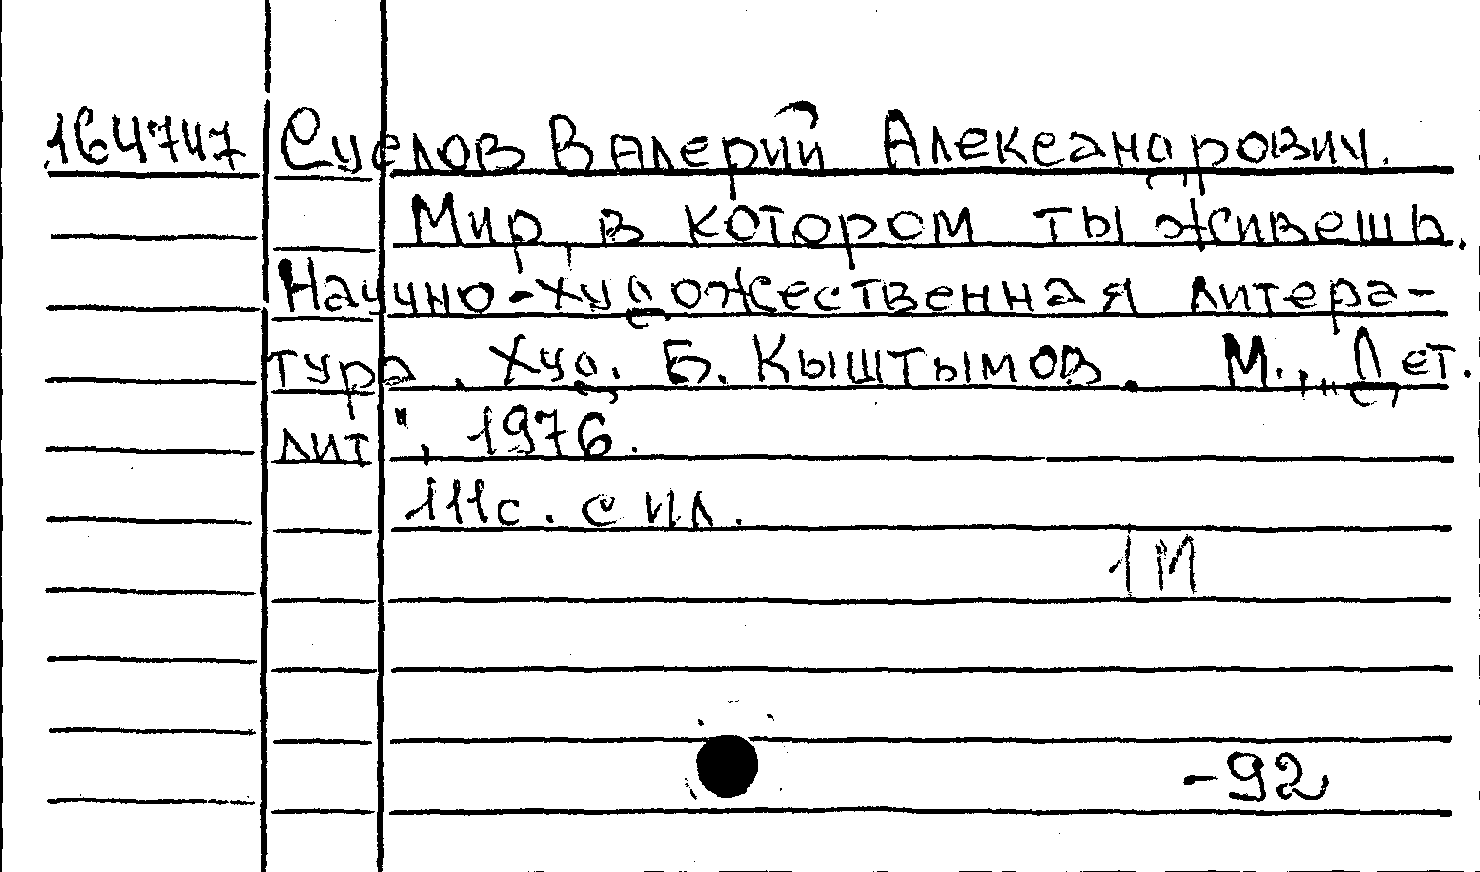 164747 Суслов Валерий Александрович.
Мир, в котором ты живешь.
Научно-художественная литера-
тура. Худ. Б. Кыштымов. М., "Дет.
лит", 1976.
111с. с ил.
1М
-92